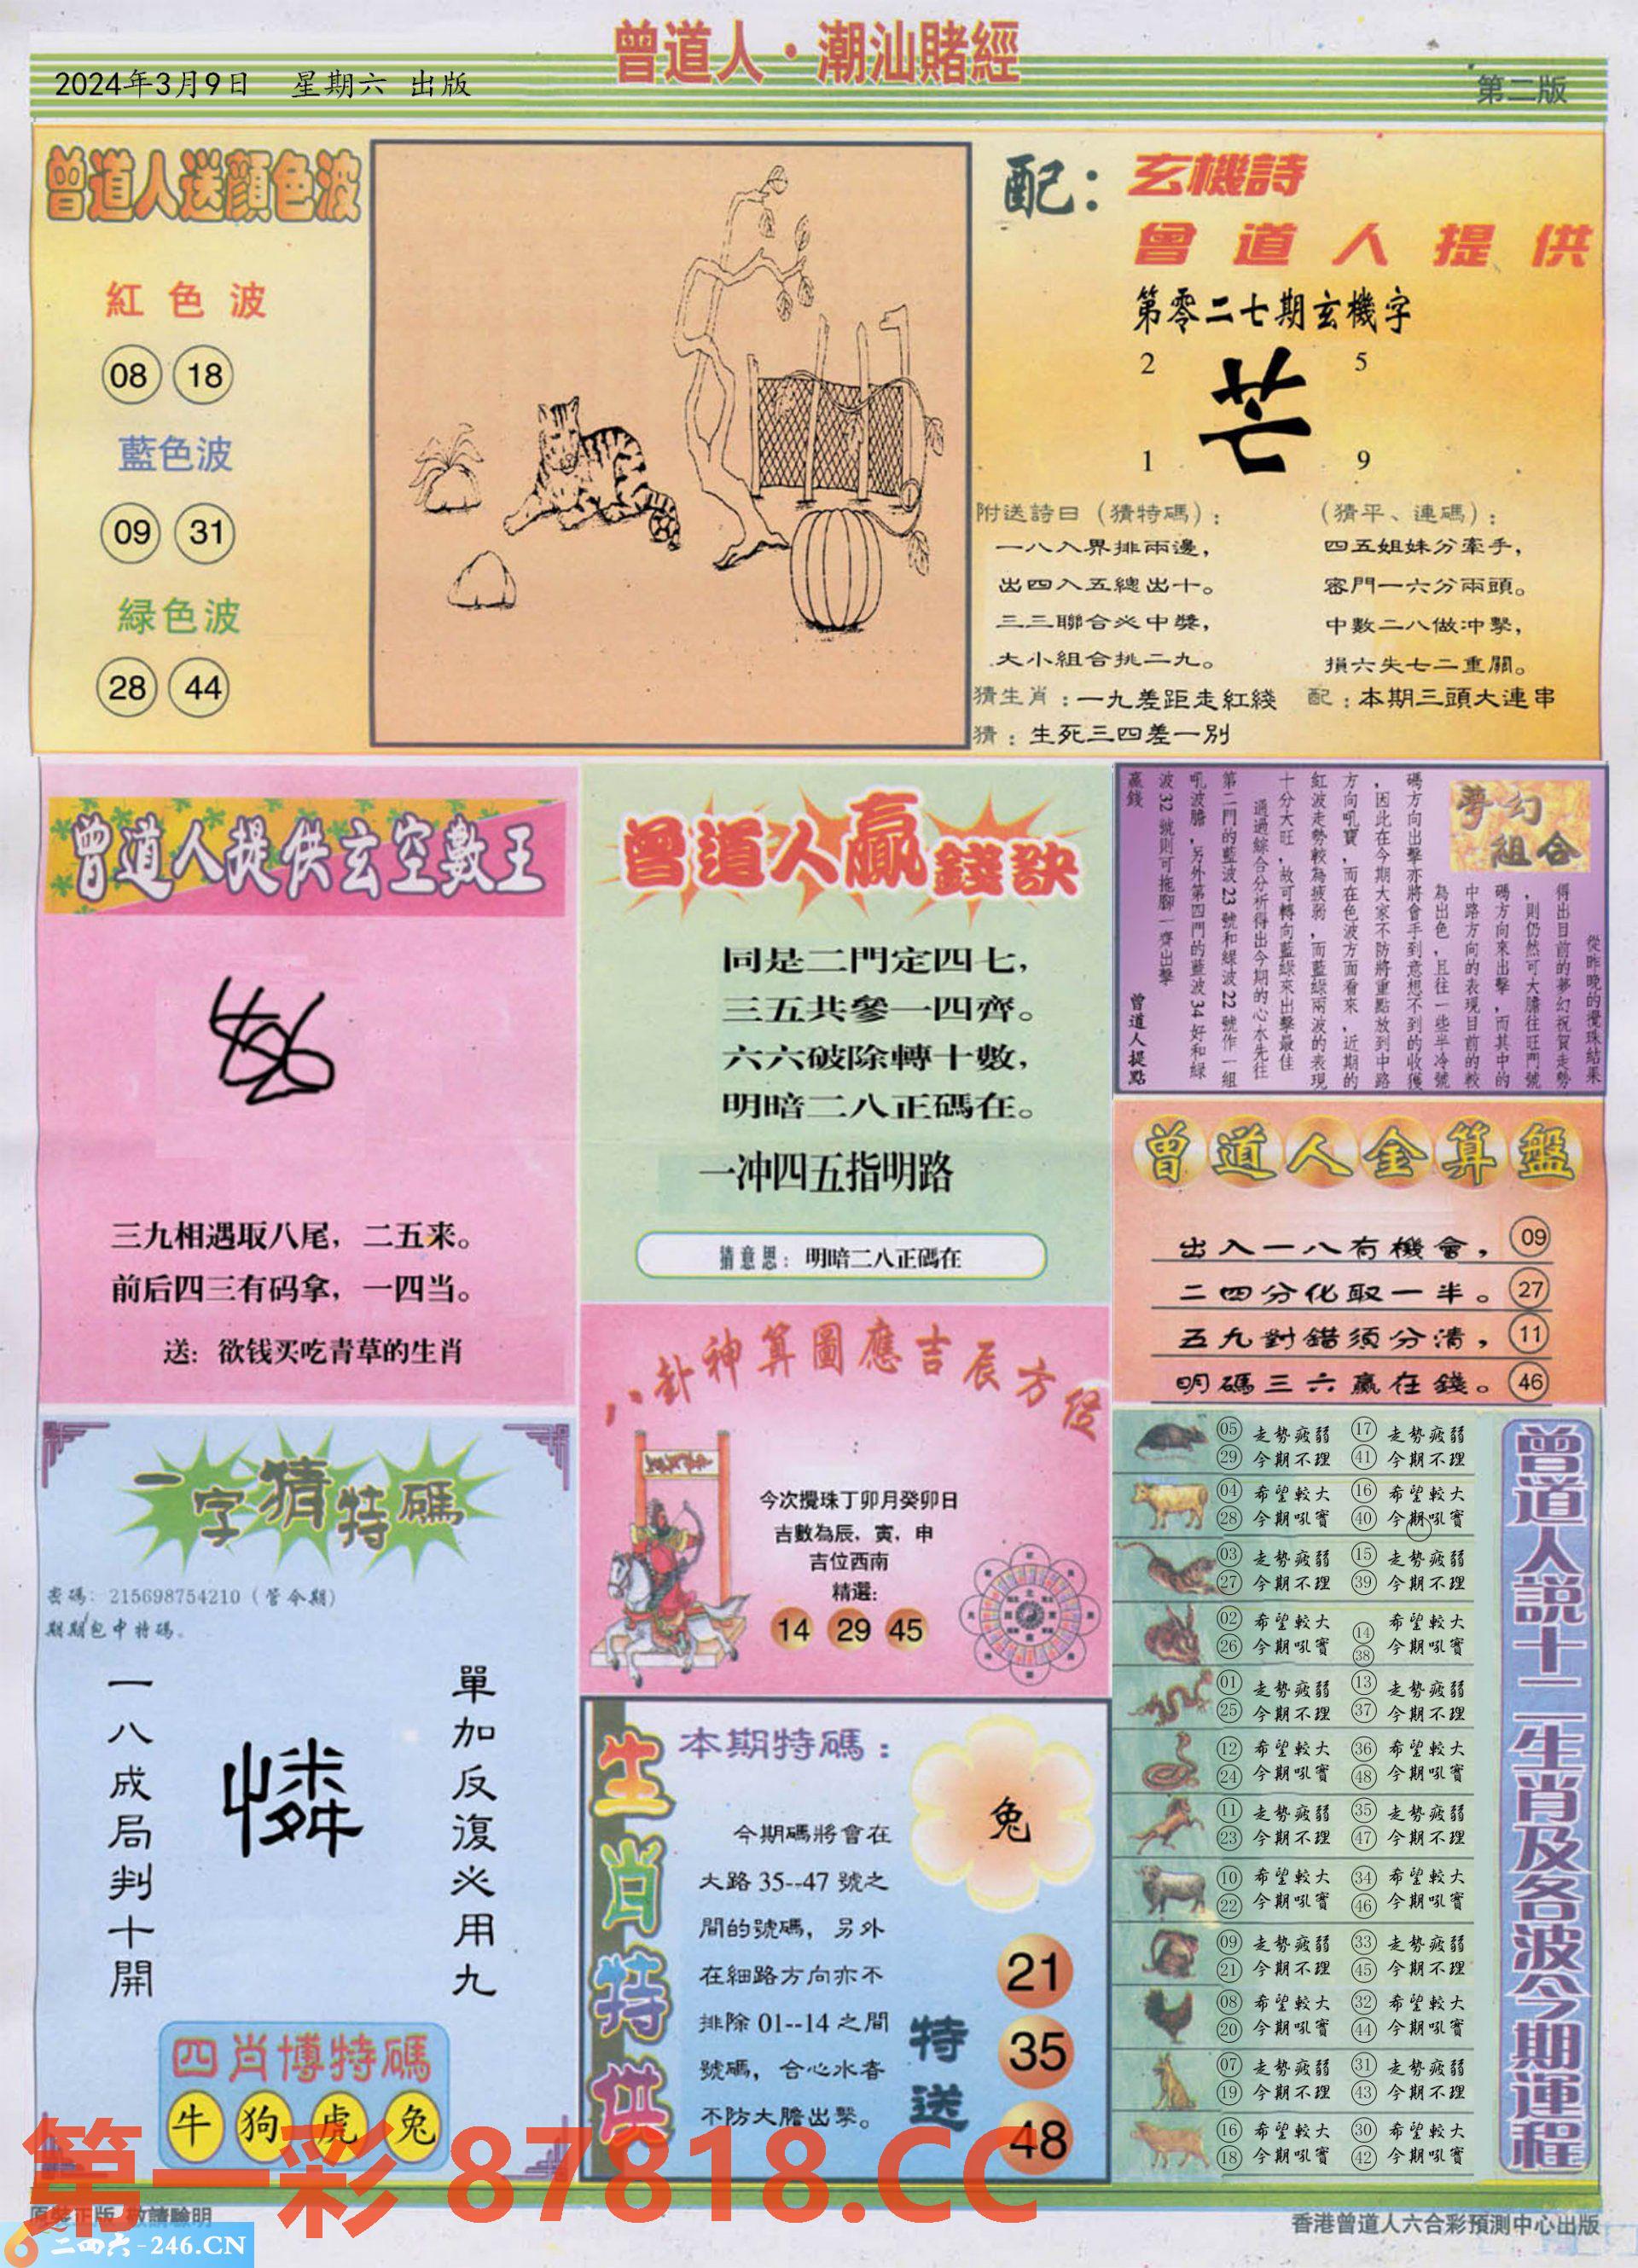 曾道人·潮汕賭經
2024年3月9日 星期六 出版
第二版
曾道人送顏色波
紅色波
08 18
藍色波
09 31
緑色波
28 44
配：玄機詩
曾道人提供
第零二七期玄機字
2 5
芒
1 9
附送詩日（猜特碼）：
一八入界排兩邊，
出四入五總出十。
三三聯合必中獎，
大小組合挑二九。
（猜平、連碼）：
四五姐妹分牽手，
密門一六分兩頭。
中數二八做冲擊，
損六失七二重關。
猜生肖：一九差距走紅綫
配：本期三頭大連串
猜：生死三四差一别
曾道人提供玄空數王
三九相遇取八尾，二五来。
前后四三有码拿，一四当。
送：欲钱买吃青草的生肖
曾道人贏錢訣
同是二門定四七，
三五共參一四齊。
六六破除轉十數，
明暗二八正碼在。
一冲四五指明路
猜意思：明暗二八正碼在
夢幻組合
從昨晚的攪珠結果
得出目前的夢幻祝賀走勢
，則仍然可大膽往旺門號
碼方向來出擊，而其中的
中路方向的表現目前的較
為出色，且往一些半冷號
碼方向出擊亦將會手到意想不到的收獲
，因此在今期大家不防將重點放到中路
方向吼寶，而在色波方面看來，近期的
紅波走勢較為疲弱，而藍緑兩波的表現
十分大旺，故可轉向藍緑來出擊最佳
通過綜合分析得出今期的心水先往
第二門的藍波23號和緑波22號作一組
吼波膽，另外第四門的藍波34好和緑
波32號則可拖腳一齊出擊
贏錢
曾道人提點
曾道人金算盤
出入一八有機會， 09
二四分化取一半。 27
五九對錯須分清， 11
明碼三六贏在錢。 46
八卦神算圖應吉辰方位
：
今次攪珠丁卯月癸卯日
吉數為辰，寅，申
吉位西南
精選:
14 29 45
一字猜特碼
密碼：215698754210（管今期）
期期包中特碼。
單加反復必用九
憐
一八成局判十開
四肖博特碼
牛 狗 虎 兔
生肖特供
本期特碼：
兔
今期碼將會在
大路35--47號之
間的號碼，另外
在細路方向亦不
排除01--14之間
號碼，合心水者
不防大膽出擊。
特送
21
35
48
曾道人説十二生肖及各波今期運程
05 走勢疲弱 17 走勢疲弱
29 今期不理 41 今期不理
04 希望較大 16 希望較大
28 今期吼寶 40 今期吼寶
03 走勢疲弱 15 走勢疲弱
27 今期不理 39 今期不理
02 希望較大 14 希望較大
26 今期吼寶 38 今期吼寶
01 走勢疲弱 13 走勢疲弱
25 今期不理 37 今期不理
12 希望較大 36 希望較大
24 今期吼寶 48 今期吼寶
11 走勢疲弱 35 走勢疲弱
23 今期不理 47 今期不理
10 希望較大 34 希望較大
22 今期吼寶 46 今期吼寶
09 走勢疲弱 33 走勢疲弱
21 今期不理 45 今期不理
08 希望較大 32 希望較大
20 今期吼寶 44 今期吼寶
07 走勢疲弱 31 走勢疲弱
19 今期不理 43 今期不理
16 希望較大 30 希望較大
18 今期吼寶 42 今期吼寶
第一彩 87818.CC
原裝正版 敬請驗明
二四六-246.CN
香港曾道人六合彩預測中心出版